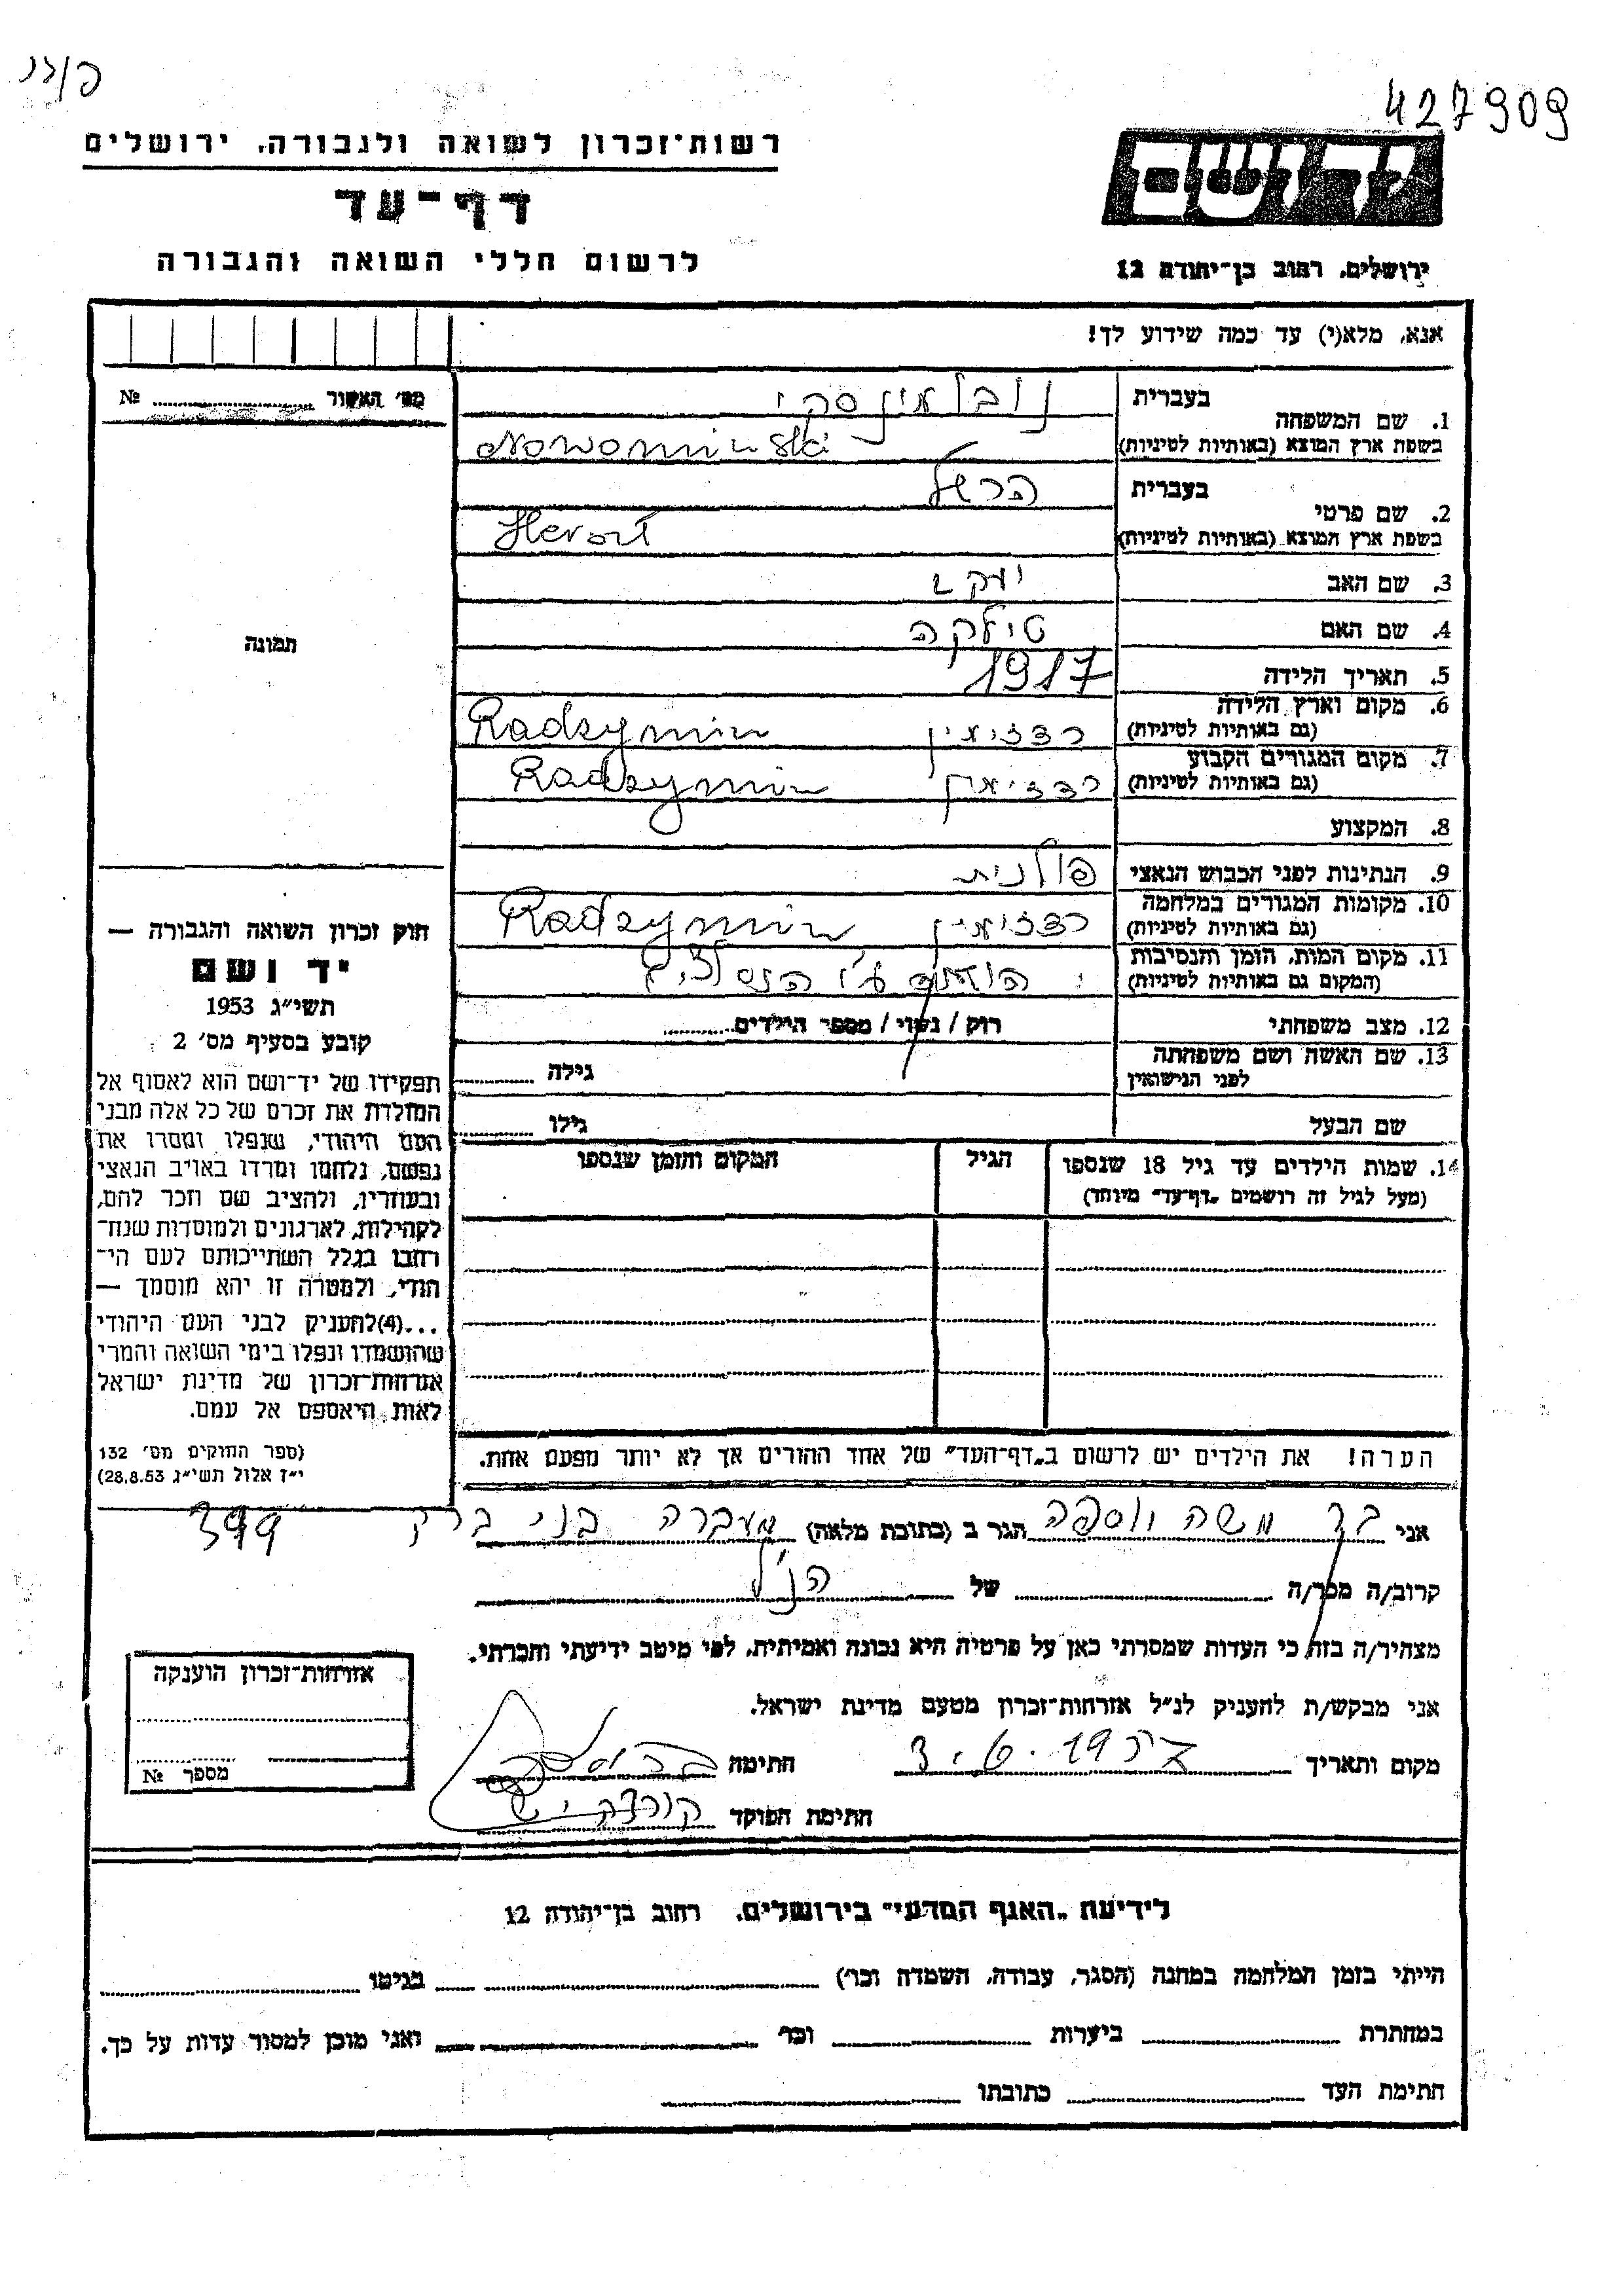 427909
רשות־זכרון לשואה ולגבורה, ירושלים
דף־עד
לרשום חללי השואה והגבורה
יד ושם
ירושלים, רחוב בן־יהודה 12
אנא, מלא(י) עד כמה שידוע לך!
מס׳ האשור № 
תמונה
1. שם המשפחה
בעברית נובומינסקי
בשפת ארץ המוצא (באותיות לטיניות) Nowominski
2. שם פרטי
בעברית הרשל
בשפת ארץ המוצא (באותיות לטיניות)
3. שם האב יעקב
4. שם האם
5. תאריך הלידה 1917
6. מקום וארץ הלידה
(גם באותיות לטיניות) רדזימין Radzymin
7. מקום המגורים הקבוע
(גם באותיות לטיניות) רדזימין Radzymin
8. המקצוע
9. הנתינות לפני הכבוש הנאצי פולנית
10. מקומות המגורים במלחמה
(גם באותיות לטיניות) רדזימין Radzymin
11. מקום המות, הזמן והנסיבות
(המקום גם באותיות לטיניות) הומת ע״י הנאצים
12. מצב משפחתי רוק / נשוי / מספר הילדים
13. שם האשה ושם משפחתה
לפני הנישואין גילה
שם הבעל גילו
14. שמות הילדים עד גיל 18 שנספו הגיל המקום והזמן שנספו
(מעל לגיל זה רושמים „דף־עד״ מיוחד)
הערה! את הילדים יש לרשום ב„דף־העד״ של אחד ההורים אך לא יותר מפעם אחת.
חוק זכרון השואה והגבורה —
יד ושם
תשי״ג 1953
קובע בסעיף מס׳ 2:
תפקידו של יד־ושם הוא לאסוף אל
המולדת את זכרם של כל אלה מבני
העם היהודי, שנפלו ומסרו את
נפשם, נלחמו ומרדו באויב הנאצי
ובעוזריו, ולהציב שם וזכר להם,
לקהילות, לארגונים ולמוסדות שנח־
רבו בגלל השתייכותם לעם הי־
הודי, ולמטרה זו יהא מוסמך —
...(4)להעניק לבני העם היהודי
שהושמדו ונפלו בימי השואה והמרי
אזרחות־זכרון של מדינת ישראל
לאות היאספם אל עמם.
(ספר החוקים מס׳ 132
י״ז אלול תשי״ג 28.8.53)
אני משה הגר ב (כתובת מלאה) מעברה בני ברק 399
קרוב/ה מכר/ה של הנ״ל
מצהיר/ה בזה, כי העדות שמסרתי כאן על פרטיה היא נכונה ואמיתית, לפי מיטב ידיעתי והכרתי.
אני מבקש/ת להעניק לנ״ל אזרחות־זכרון מטעם מדינת ישראל.
מקום ותאריך חתימה
חתימת הפוקד
אזרחות־זכרון הוענקה
מספר №
לידיעת „האגף המדעי״ בירושלים, רחוב בן־יהודה 12
הייתי בזמן המלחמה במחנה (הסגר, עבודה, השמדה וכר׳) בגיטו
במחתרת ביערות וכר׳ ואני מוכן למסור עדות על כך.
חתימת העד כתובתו